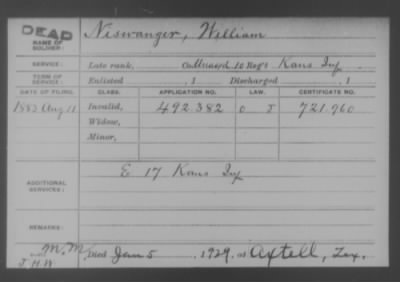 DEAD
NAME OF SOLDIER:
Niswanger, William
SERVICE:
Late rank, Reg't Kans Inf
TERM OF SERVICE:
Enlisted , 1 Discharged , 1
DATE OF FILING. CLASS. APPLICATION NO. LAW. CERTIFICATE NO.
1883 Aug 11 Invalid, 492.382 721.960
Widow,
Minor,
ADDITIONAL SERVICES:
E 17 Kans Inf
REMARKS:
M.M.
J.H.W.
Died Jan 5 1929, at Axtell, Tex.